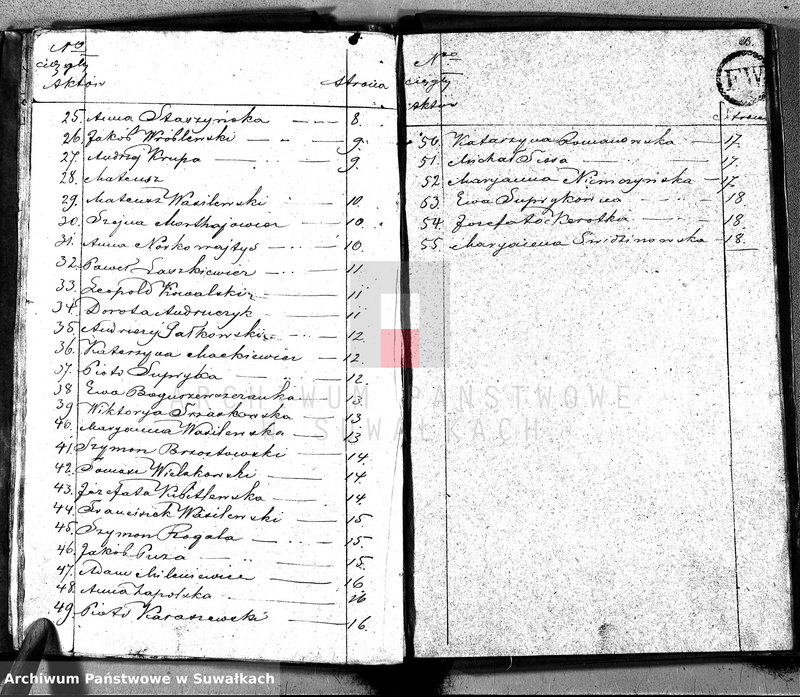 No
ciągły
Aktów
Strona
25. Anna Staszyńska 8.
26. Jakób Wróblewski 9.
27. Andrzej Krupa 9.
28. Mateusz
29. Mateusz Wasilewski 10.
30. Szejna 10.
31. Anna 10.
32. Paweł Laszkiewicz 11.
33. Leopold Kowalski 11
34. Dorota Andruczyk 11
35. Andrzej Gałkowski 12.
36. Katarzyna Mackiewicz 12.
37. Piotr Supryka 12
38 Ewa 13.
39 Wiktorya 13
40. Maryanna Wasilewska 13
41. Szymon Brzostowski 14.
42. Tomasz Wielakowski 14
43. Józefata 14
44. Franciszek Wasilewski 15
45. Szymon Rogala 15.
46. Jakób Puza 15.
47. Adam Milewicz 16
48. Anna Zapolska 16
49. Piotr Karaszewski 16.
Nro
ciągły
Aktów
Strona
FW
50. Katarzyna Romanowska 17.
51. Michał 17.
52. Maryanna Niemczyńska 17.
53. Ewa Suprykówna 18
54. Józefata Berotka 18.
55. Maryanna Świdzinowska 18.
ARCHIWUM PAŃSTWOWE
W SUWAŁKACH
Archiwum Państwowe w Suwałkach